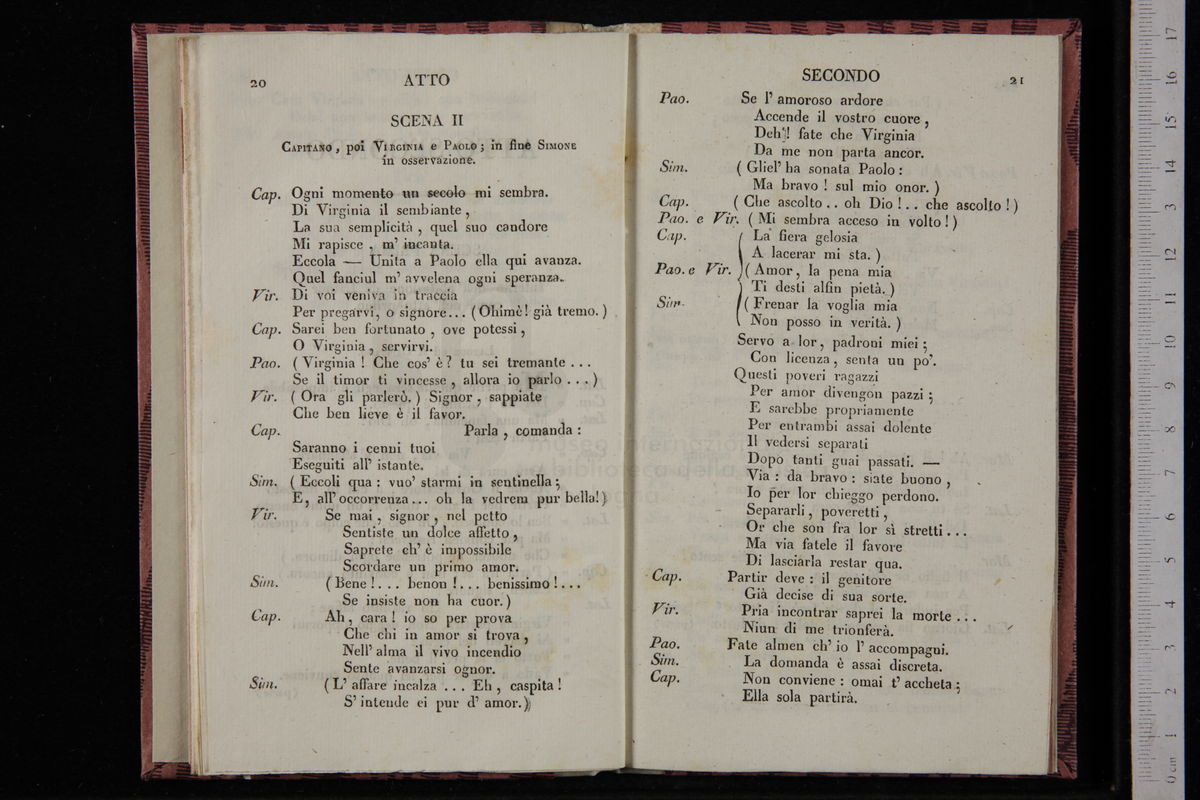 20 ATTO
SCENA II
Capitano, poi Virginia e Paolo; in fine Simone
in osservazione.
Cap. Ogni momento un secolo mi sembra.
Di Virginia il sembiante,
La sua semplicità, quel suo candore
Mi rapisce, m' incanta.
Eccola — Unita a Paolo ella qui avanza.
Quel fanciul m' avvelena ogni speranza.
Vir. Di voi veniva in traccia
Per pregarvi, o signore... (Ohimè! già tremo.)
Cap. Sarei ben fortunato, ove potessi,
O Virginia, servirvi.
Pao. (Virginia! Che cos' è? tu sei tremante...
Se il timor ti vincesse, allora io parlo...)
Vir. (Ora gli parlerò.) Signor, sappiate
Che ben lieve è il favor.
Cap. Parla, comanda:
Saranno i cenni tuoi
Eseguiti all' istante.
Sim. (Eccoli qua: vuo' starmi in sentinella;
E, all' occorrenza... oh la vedrem pur bella!)
Vir. Se mai, signor, nel petto
Sentiste un dolce affetto,
Saprete ch' è impossibile
Scordare un primo amor.
Sim. (Bene!... benon!... benissimo!...
Se insiste non ha cuor.)
Cap. Ah, cara! io so per prova
Che chi in amor si trova,
Nell' alma il vivo incendio
Sente avanzarsi ognor.
Sim. (L' affare incalza... Eh, caspita!
S' intende ei pur d' amor.)
SECONDO 21
Pao. Se l' amoroso ardore
Accende il vostro cuore,
Deh! fate che Virginia
Da me non parta ancor.
Sim. (Gliel' ha sonata Paolo:
Ma bravo! sul mio onor.)
Cap. (Che ascolto.. oh Dio!.. che ascolto!)
Pao. e Vir. (Mi sembra acceso in volto!)
Cap. (La fiera gelosia
A lacerar mi sta.)
Pao. e Vir. (Amor, la pena mia
Ti desti alfin pietà.)
Sim. (Frenar la voglia mia
Non posso in verità.)
Servo a lor, padroni miei;
Con licenza, senta un po'.
Questi poveri ragazzi
Per amor divengon pazzi;
E sarebbe propriamente
Per entrambi assai dolente
Il vedersi separati
Dopo tanti guai passati. —
Via: da bravo: siate buono,
Io per lor chieggo perdono.
Separarli, poveretti,
Or che son fra lor sì stretti...
Ma via fatele il favore
Di lasciarla restar qua.
Cap. Partir deve: il genitore
Già decise di sua sorte.
Vir. Pria incontrar saprei la morte...
Niun di me trionferà.
Pao. Fate almen ch' io l' accompagni.
Sim. La domanda è assai discreta.
Cap. Non conviene: omai t' accheta;
Ella sola partirà.